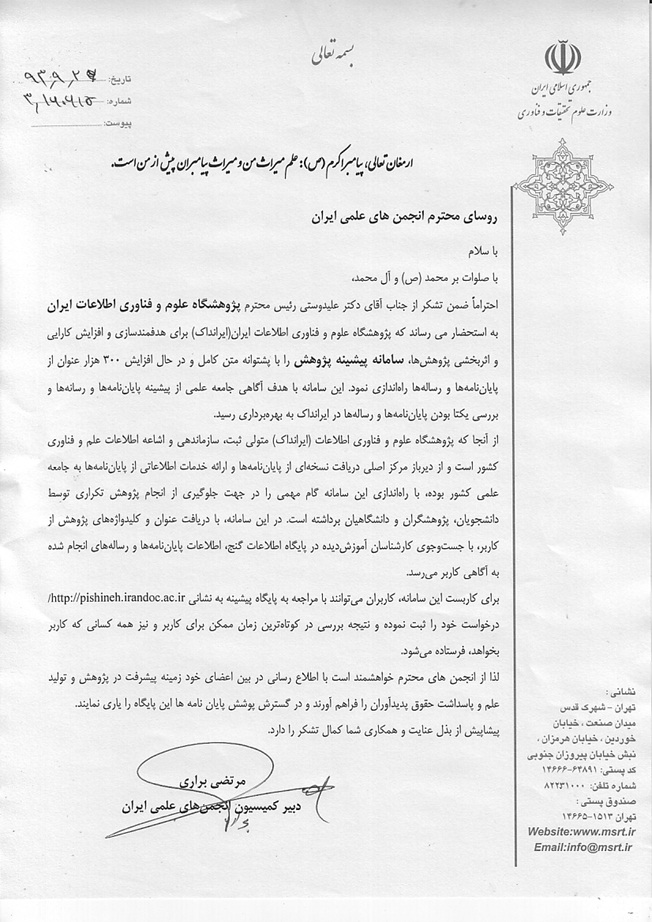 بسمه تعالی
جمهوری اسلامی ایران
وزارت علوم تحقیقات و فناوری
تاریخ: ۹۳,۹,۲۷
شماره:
پیوست:
ارمغان تعالی، پیامبر اکرم (ص): علم میراث من و میراث پیامبران پیش از من است.
روسای محترم انجمن های علمی ایران
با سلام
با صلوات بر محمد (ص) و آل محمد،
احتراماً ضمن تشکر از جناب آقای دکتر علیدوستی رئیس محترم پژوهشگاه علوم و فناوری اطلاعات ایران
به استحضار می رساند که پژوهشگاه علوم و فناوری اطلاعات ایران(ایرانداک) برای هدفمندسازی و افزایش کارایی
و اثربخشی پژوهش‌ها، سامانه پیشینه پژوهش را با پشتوانه متن کامل و در حال افزایش ۳۰۰ هزار عنوان از
پایان‌نامه‌ها و رساله‌ها راه‌اندازی نمود. این سامانه با هدف آگاهی جامعه علمی از پیشینه پایان‌نامه‌ها و رسانه‌ها و
بررسی یکتا بودن پایان‌نامه‌ها و رساله‌ها در ایرانداک به بهره‌برداری رسید.
از آنجا که پژوهشگاه علوم و فناوری اطلاعات (ایرانداک) متولی ثبت، سازماندهی و اشاعه اطلاعات علم و فناوری
کشور است و از دیرباز مرکز اصلی دریافت نسخه‌ای از پایان‌نامه‌ها و ارائه خدمات اطلاعاتی از پایان‌نامه‌ها به جامعه
علمی کشور بوده، با راه‌اندازی این سامانه گام مهمی را در جهت جلوگیری از انجام پژوهش تکراری توسط
دانشجویان، پژوهشگران و دانشگاهیان برداشته است. در این سامانه، با دریافت عنوان و کلیدواژه‌های پژوهش از
کاربر، با جست‌وجوی کارشناسان آموزش‌دیده در پایگاه اطلاعات گنج، اطلاعات پایان‌نامه‌ها و رساله‌های انجام شده
به آگاهی کاربر می‌رسد.
برای کاربست این سامانه، کاربران می‌توانند با مراجعه به پایگاه پیشینه به نشانی http://pishineh.irandoc.ac.ir/
درخواست خود را ثبت نموده و نتیجه بررسی در کوتاه‌ترین زمان ممکن برای کاربر و نیز همه کسانی که کاربر
بخواهد، فرستاده می‌شود.
لذا از انجمن های محترم خواهشمند است با اطلاع رسانی در بین اعضای خود زمینه پیشرفت در پژوهش و تولید
علم و پاسداشت حقوق پدیدآوران را فراهم آورند و در گسترش پوشش پایان نامه ها این پایگاه را یاری نمایند.
پیشاپیش از بذل عنایت و همکاری شما کمال تشکر را دارد.
مرتضی براری
دبیر کمیسیون انجمن‌های علمی ایران
نشانی:
تهران - شهرک قدس
میدان صنعت ، خیابان
خوردین ، خیابان هرمزان ،
نبش خیابان پیروزان جنوبی
کد پستی: ۶۴۸۹۱-۱۴۶۶۶
شماره تلفن: ۸۲۲۳۱۰۰۰
صندوق پستی :
تهران ۱۵۱۳-۱۴۶۶۵
Website:www.msrt.ir
Email:info@msrt.ir